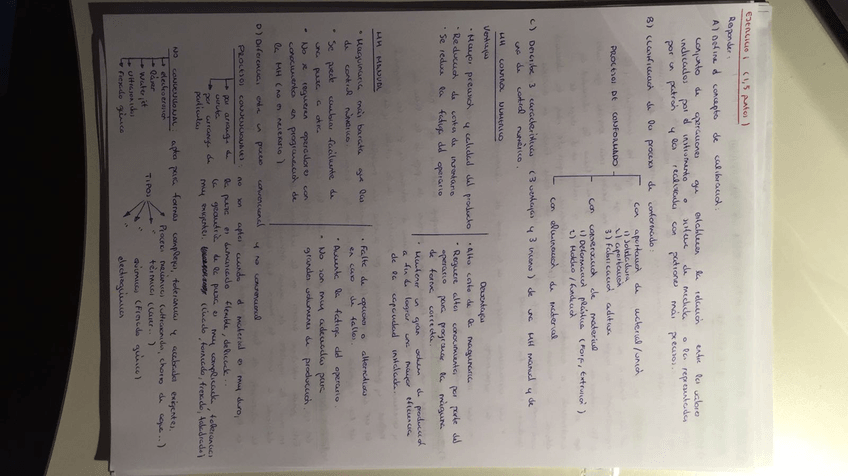 EJERCICIO 1 (1,5 puntos)
Responder:
A) Define el concepto de calibración:
Conjunto de operaciones que establecen la relación entre los valores
indicados por el instrumento o sistema de medida o los representados
por un patrón y los realizados con patrones más precisos.
B) Clasificación de los procesos de conformado:
PROCESOS DE CONFORMADO
Con aportación de material/unión
1) Soldadura
2) aportación
3) Fabricación aditiva
con conservación de material
1) Deformación plástica (Forja, Extrusión)
2) Moldeo/fundición
con eliminación de material
C) Describe 3 características (3 ventajas y 3 incon.) de una MH manual y de
una de control numérico.
MH CONTROL NUMÉRICO
Ventajas
• Mayor precisión y calidad del producto
• Reducción de costes de inventario
• Se reduce la fatiga del operario
Desventajas
• Alto coste de la maquinaria
• Requiere altos conocimientos por parte del
operario para programar la máquina
de forma correcta.
• Mantener un gran volumen de producción
a fin de lograr una mayor eficiencia
de la capacidad instalada.
MH MANUAL
• Maquinaria más barata que las
de control numérico.
• Se puede cambiar fácilmente de
una pieza a otra
• No se requieren operadores con
conocimientos en programación de
la MH (no es necesario)
• Falta de opciones o alternativas
en caso de fallas
• Aumenta la fatiga del operario
• No son muy adecuadas para
grandes volúmenes de producción.
D) Diferencias entre un proceso convencional y no convencional
PROCESOS CONVENCIONALES no son aptos cuando el material es muy duro,
por arranque de viruta
por arranque de partículas
la pieza es demasiado flexible, delicada...
la geometría de la pieza es muy complicada, tolerancias
muy exigentes, (limado, torneado, fresado, taladrado)
NO CONVENCIONALES aptos para formas complejas, tolerancias y acabados exigentes,
• electroerosión
• láser
• water jet
• ultrasonidos
• Fresado químico
TIPOS
Proceso mecánicos (ultrasonido, chorro de agua...)
" térmicos (láser...)
" químicos (fresado químico)
" electroquímicos